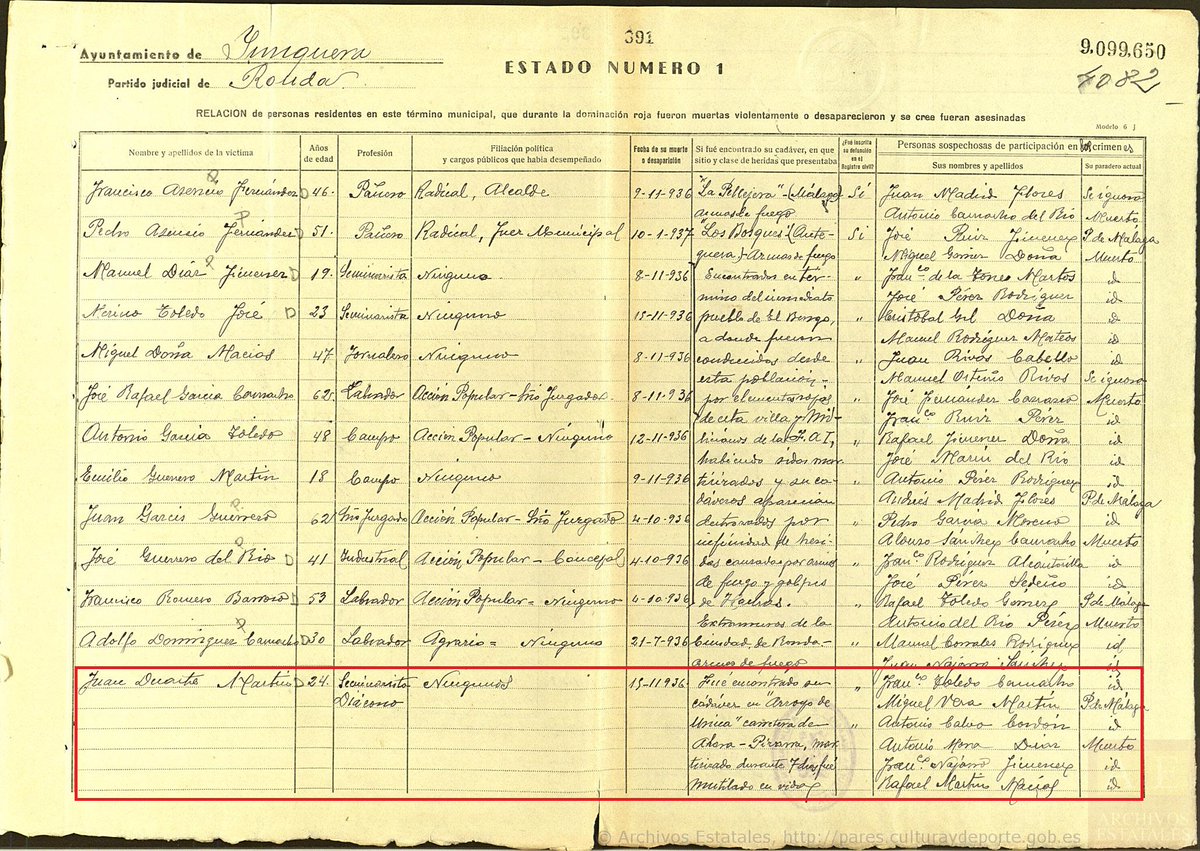 391
9.099.650
4082
Ayuntamiento de Yunquera
Partido judicial de Ronda
ESTADO NUMERO 1
RELACION de personas residentes en este término municipal, que durante la dominación roja fueron muertas violentamente o desaparecieron y se cree fueran asesinadas
Modelo 6
Nombre y apellidos de la víctima
Años de edad
Profesión
Filiación política y cargos públicos que había desempeñado
Fecha de su muerte o desaparición
Si fué encontrado su cadáver, en que sitio y clase de heridas que presentaba
¿Fué inscrita su defunción en el Registro civil?
Personas sospechosas de participación en los crimenes
Sus nombres y apellidos
Su paradero actual
Francisco Asencio Fernández D 46. Pañero Radical, Alcalde 9-11-936 "La Pellejera" - (Málaga) Sí Juan Madrid Flores Se ignora
armas de fuego Antonio Camacho del Rio Muerto
Pedro Asencio Fernández D 51. Pañero Radical, Juez Municipal 10-1-937 "Los Bosques" (Ante- Si José Ruiz Jimenez P. de Málaga
quera) Armas de fuego Miguel Gomez Doña Muerto
Manuel Díaz Jimenez D 19. Seminarista Ninguno 8-11-936 Encontrados en tér- " Franco de la Torre Martos id
mino del inmediato José Pérez Rodríguez id
Toledo José D 23 Seminarista Ninguno 15-11-936 pueblo de El Burgo, " Cristobal Gil Doña id
a donde fueron Manuel Rodríguez Mateos id
Miguel Doña Macias 47 Jornalero Ninguno 8-11-936 conducidos desde " Juan Rivas Cabello id
esta población- Manuel Ortuño Rivas Se ignora
José Rafael Garcia Camacho 62. Labrador Acción Popular - Srio Juzgados 8-11-936 por elementos rojos " José Fernandez Carrasco Muerto
de esta villa y Mi- Franco Ruiz Pérez id
Antonio Garcia Toledo 48 Campo Acción Popular - Ninguno 12-11-936 licianos de la F.A.I, " Rafael Jimenez Doña id
habiendo sidos mar- José Marín del Rio id
Emilio Guerrero Martín 18 Campo Ninguno 9-11-936 tirizados y su ca- " Antonio Pérez Rodriguez id
dáveres aparecian Andrés Madrid Flores P. de Málaga
Juan Garcis Guerrero 62 Srio Juzgado Acción Popular - Srio Juzgado 4-10-936 destrozados por " Pedro Garcia Moreno id
infinidad de heri- Alonso Sánchez Camacho Muerto
José Guerrero del Rio D 41 Industrial Acción Popular - Concejal 4-10-936 das causadas por armas " Franco Rodríguez Alcantarilla id
de fuego y golpes José Pérez Sedeño id
Francisco Romero Barroso D 53 Labrador Acción Popular = Ninguno 4-10-936 de " Rafael Toledo Gómez P. de Málaga
Extramuros de la Antonio del Rio Pérez Muerto
Adolfo Dominguez Camacho D 30 Labrador Agrario = Ninguno 21-7-936 Ciudad, de Ronda- " Manuel Corrales Rodriguez id
armas de fuego Juan Najarro Sanchez id
Juan Duarte Martín D 24. Seminarista Ningunos 15-11-936. Fué encontrado su " Franco Toledo Camacho id
Diácono cadáver en "Arroyo de Miguel Vera Martín P. de Málaga
" carretera de " Antonio Calvo Cordón id
Alora - Pizarra, mar- Antonio Mora Diaz Muerto
tirizado durante 7 dias fué Franco Najarro Jimenez id
mutilado en vida Rafael Martin Macias id
ARCHIVOS ESTATALES
© Archivos Estatales, http://pares.culturaydeporte.gob.es